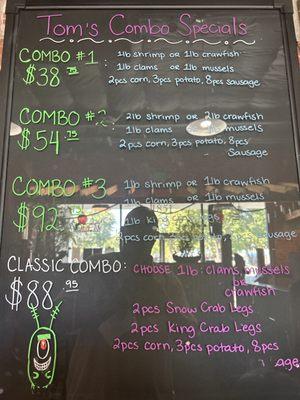 Tom's Combo Specials
COMBO #1 : 1lb shrimp OR 1lb crawfish
$38 .75 1lb clams OR 1lb mussels
2pcs corn, 3pcs potato, 8pcs sausage
COMBO #2 2lb shrimp OR 2lb crawfish
$54 .75 1lb clams mussels
2pcs corn, 3pcs potato, 8pcs
Sausage
COMBO #3 1lb shrimp OR 1lb crawfish
$92 1lb clams OR 1lb mussels
1lb king legs
2pcs corn potato, sausage
CLASSIC COMBO: CHOOSE 1lb: clams, mussels
OR
crawfish
$88 .95
2pcs Snow Crab Legs
2pcs King Crab Legs
2pcs corn, 3pcs potato, 8pcs